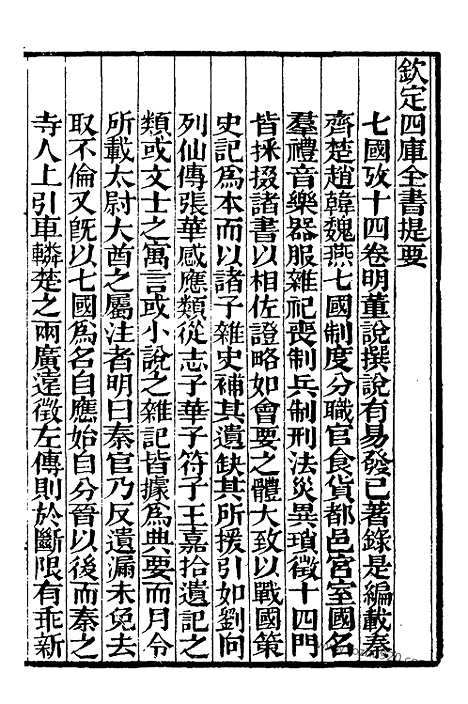 欽定四庫全書提要
七國攷十四卷明董說撰說有易發已著錄是編載秦
齊楚趙韓魏燕七國制度分職官食貨都邑宮室國名
羣禮音樂器服雜祀喪制兵制刑法災異瑣徵十四門
皆採掇諸書以相佐證略如會要之體大致以戰國策
史記為本而以諸子雜史補其遺缺其所援引如劉向
列仙傳張華感應類從志子華子符子王嘉拾遺記之
類或文士之寓言或小說之雜記皆據為典要而月令
所載大尉大酋之屬注者明曰秦官乃反遺漏未免去
取不倫又旣以七國為名自應始自分晉以後而秦之
寺人上引車轔楚之兩廣遠徵左傳則於斷限有乖新